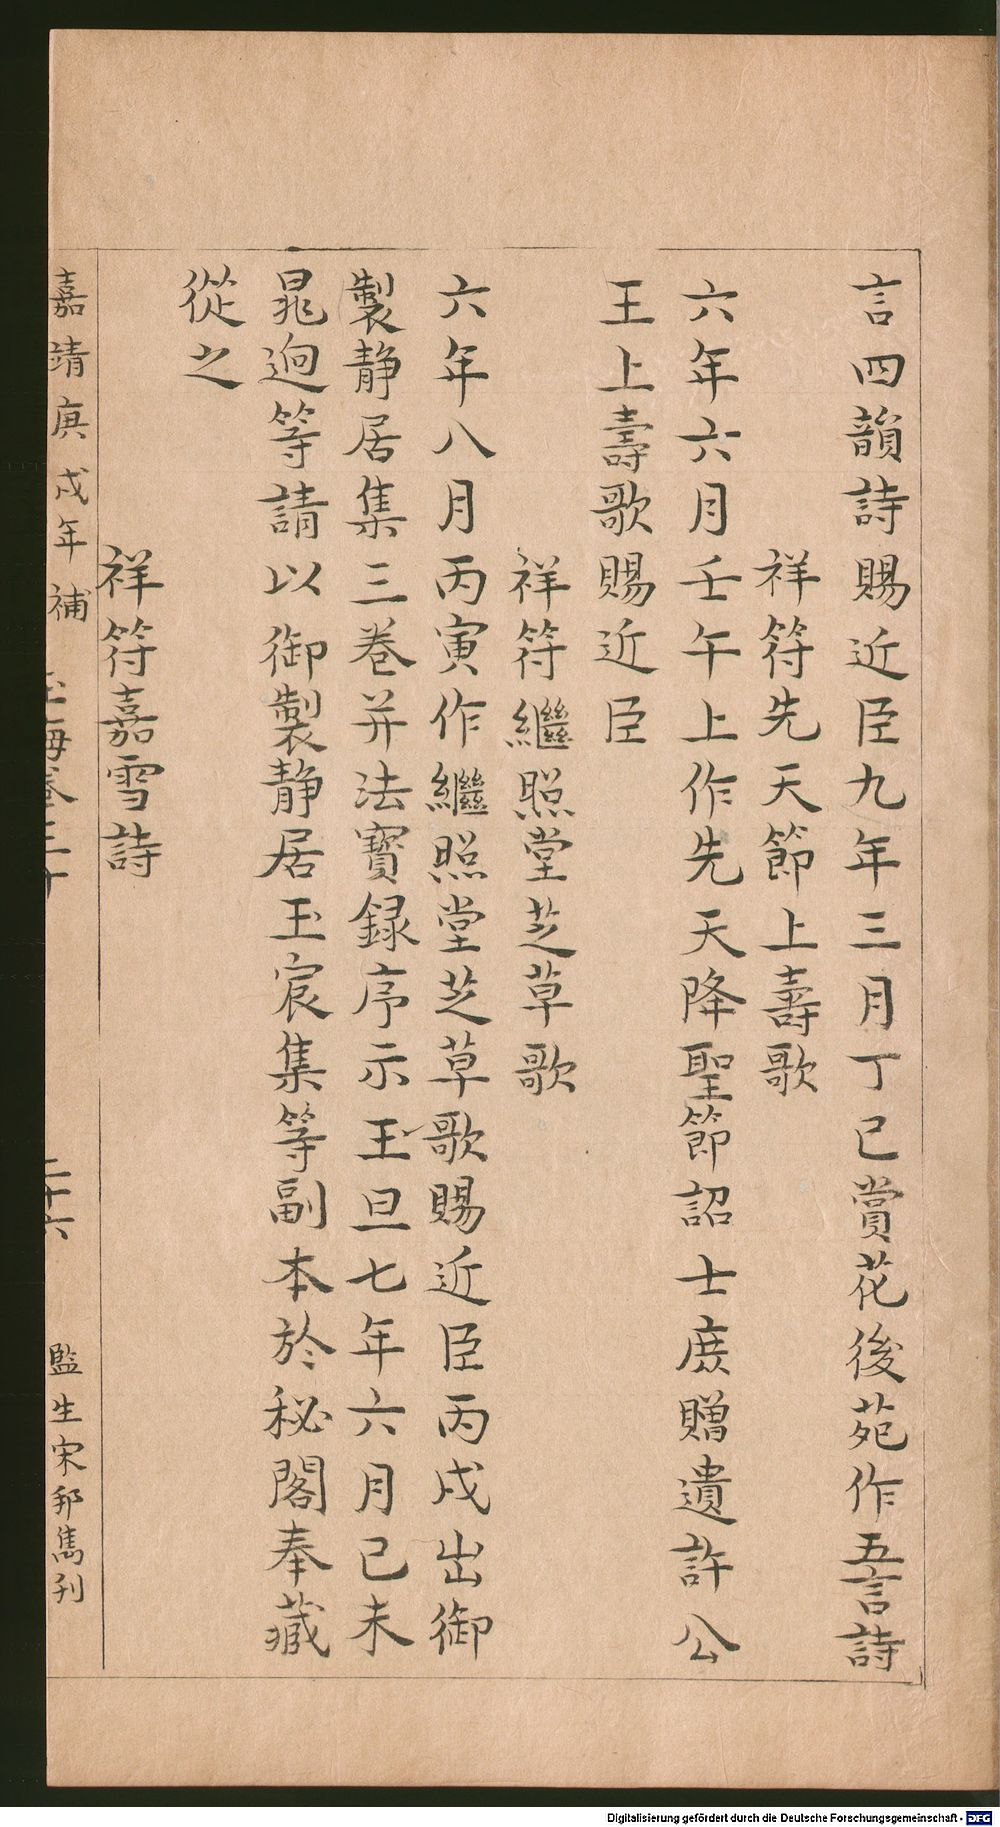 言四韻詩賜近臣九年三月丁巳賞花後苑作五言詩
祥符先天節上壽歌
六年六月壬午上作先天降聖節詔士庶贈遺許公
王上壽歌賜近臣
祥符繼照堂芝草歌
六年八月丙寅作繼照堂芝草歌賜近臣丙戌出御
製静居集三卷并法寶録序示王旦七年六月己未
晁迥等請以御製静居玉宸集等副本於秘閣奉藏
從之
祥符嘉雪詩
嘉靖庚戌年補 玉海卷三十 二十六 監生宋邦雋刊
Digitalisierung gefördert durch die Deutsche Forschungsgemeinschaft - DFG